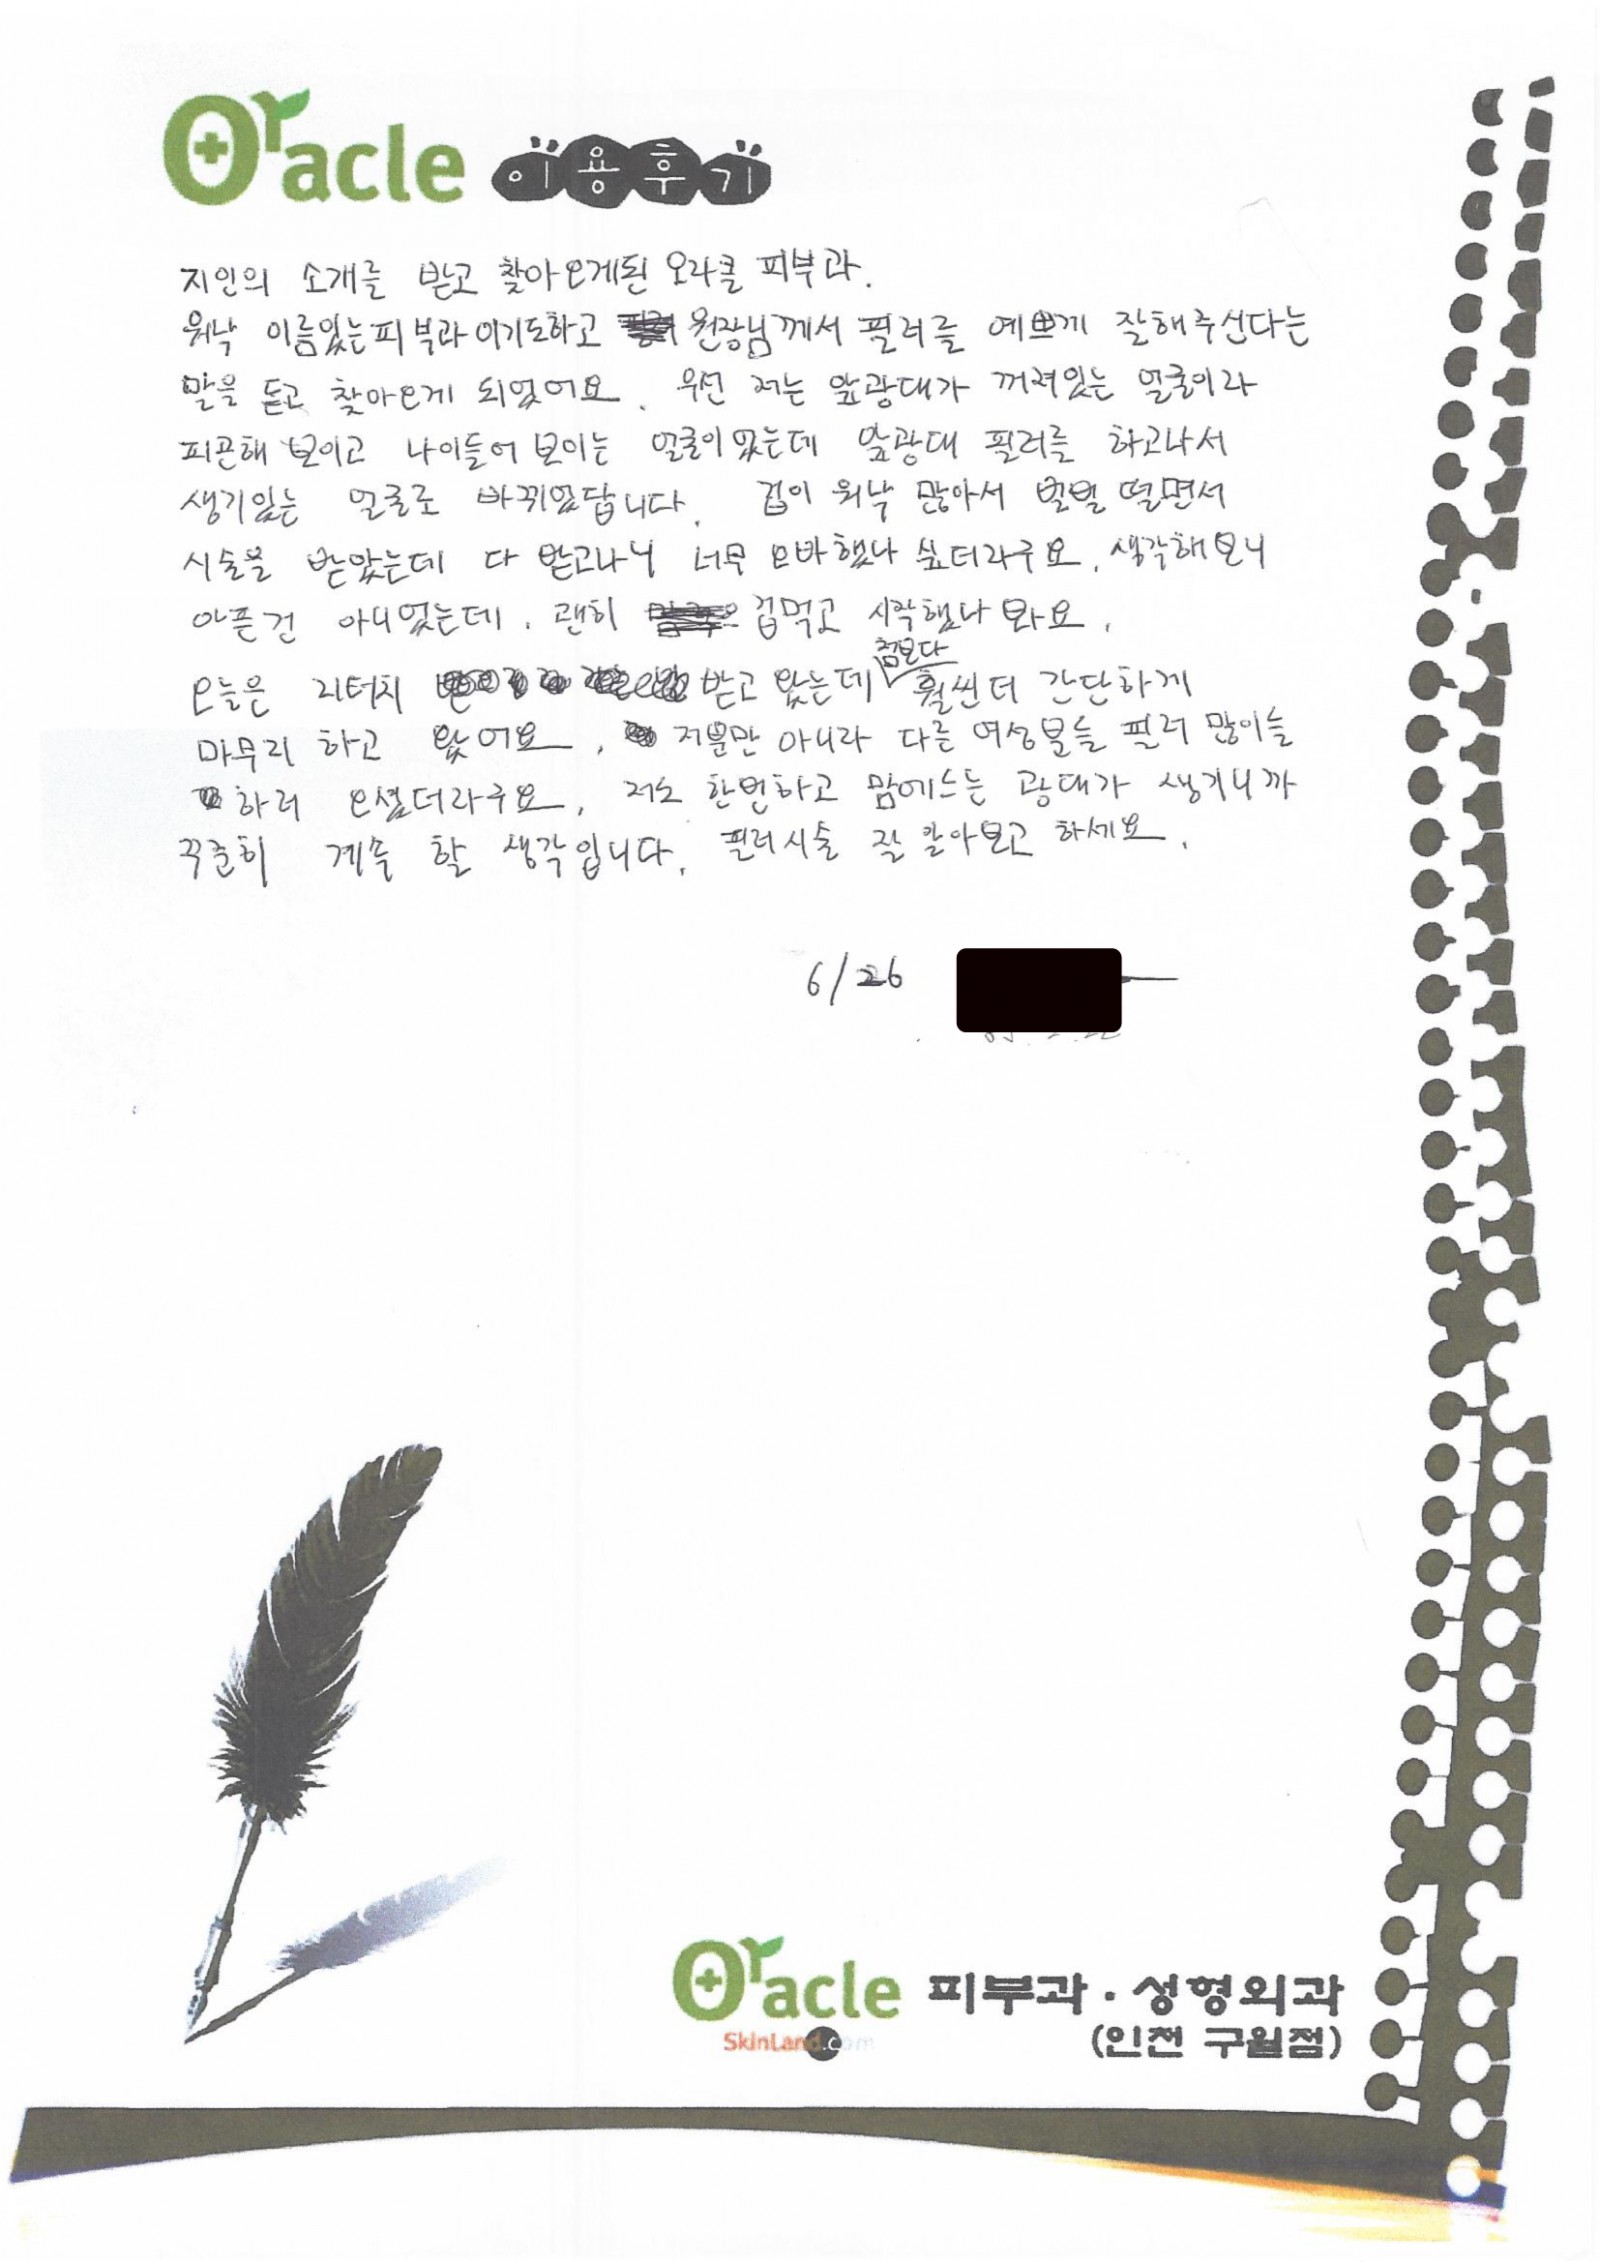 Oracle 이용후기
지인의 소개를 받고 찾아오게된 오라클 피부과.
워낙 이름있는피부과이기도하고 원장님께서 필러를 예쁘게 잘해주신다는
말을 듣고 찾아오게 되었어요. 우선 저는 앞광대가 꺼져있는 얼굴이라
피곤해 보이고 나이들어 보이는 얼굴이었는데 앞광대 필러를 하고나서
생기있는 얼굴로 바뀌었답니다. 겁이 워낙 많아서 벌벌 떨면서
시술을 받았는데 다 받고나니 너무 오바했나 싶더라구요. 생각해보니
아픈건 아니었는데. 괜히 겁먹고 시작했나 봐요.
오늘은 리터치 받고 왔는데 첨보다 훨씬더 간단하게
마무리 하고 왔어요. 저뿐만 아니라 다른 여성분들 필러 많이들
하러 오셨더라구요. 저도 한번하고 맘에드는 광대가 생기니까
꾸준히 계속 할 생각입니다. 필러시술 잘 알아보고 하세요.
6/26
Oracle 피부과·성형외과
SkinLand.com (인천 구월점)